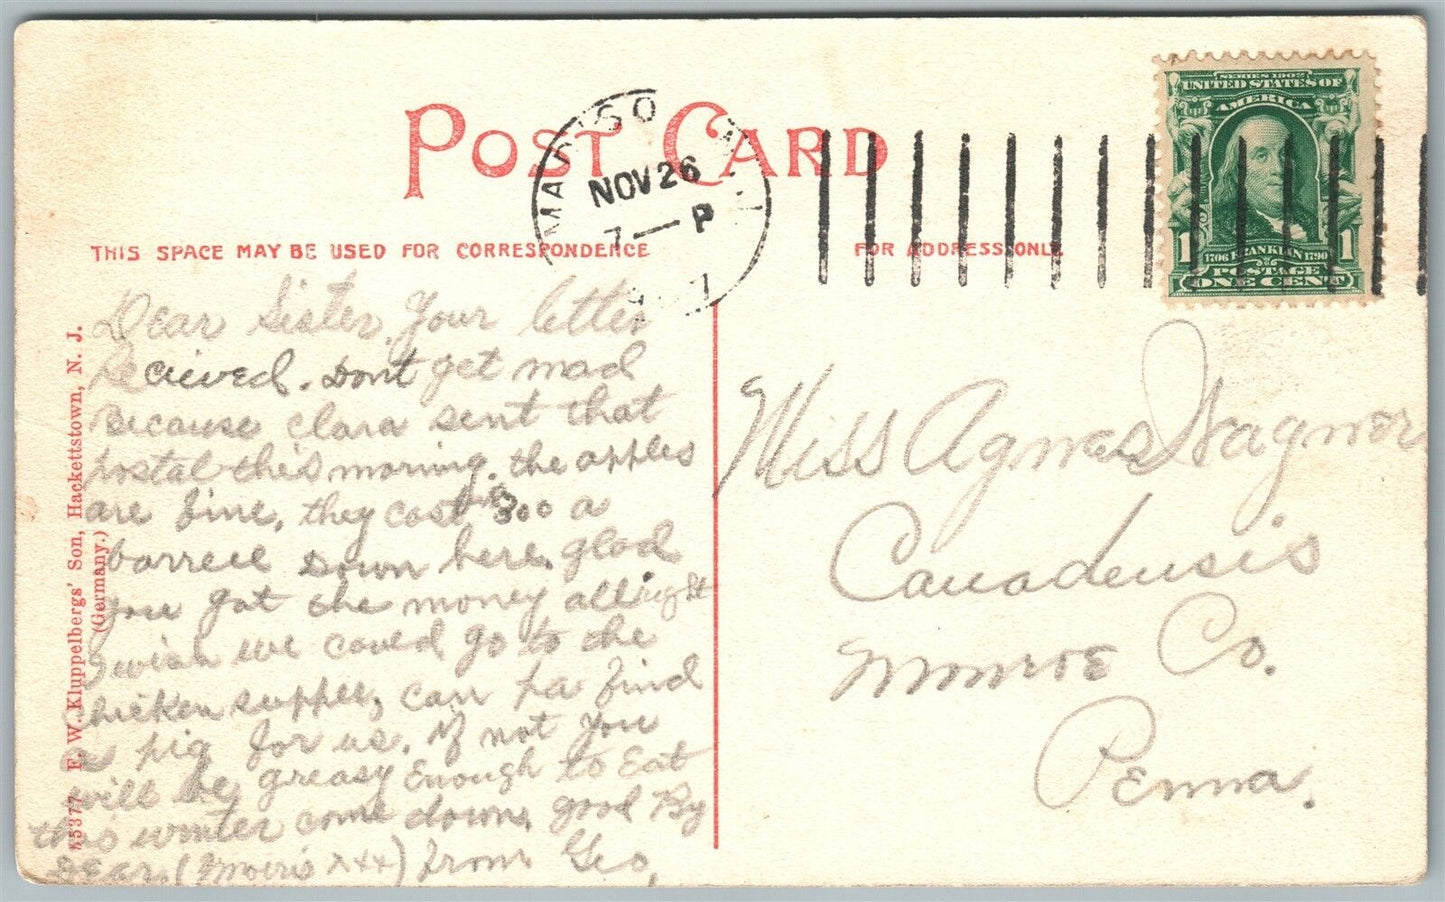 POST CARD
MADISON
NOV 26
7—P
THIS SPACE MAY BE USED FOR CORRESPONDENCE
FOR ADDRESS ONLY
SERIES 1902
UNITED STATES OF
AMERICA
1706 FRANKLIN 1790
1 POSTAGE 1
ONE CENT
55377 F. W. Kluppelbergs' Son, Hackettstown, N. J.
(Germany.)
Dear Sister, Your letter
Recieved. Dont get mad
Because clara sent that
postal this morning. the apples
are fine, they cost 300 a
barrell down here. glad
you got the money all right
I wish we could go to the
chicken supper, can pa find
a pig for us. If not you
will be greasy Enough to Eat
this winter come down, good By
DEar. (Morris xxx) from Geo,
Miss Agnes Wagner
Canadensis
Monroe Co.
Penna.